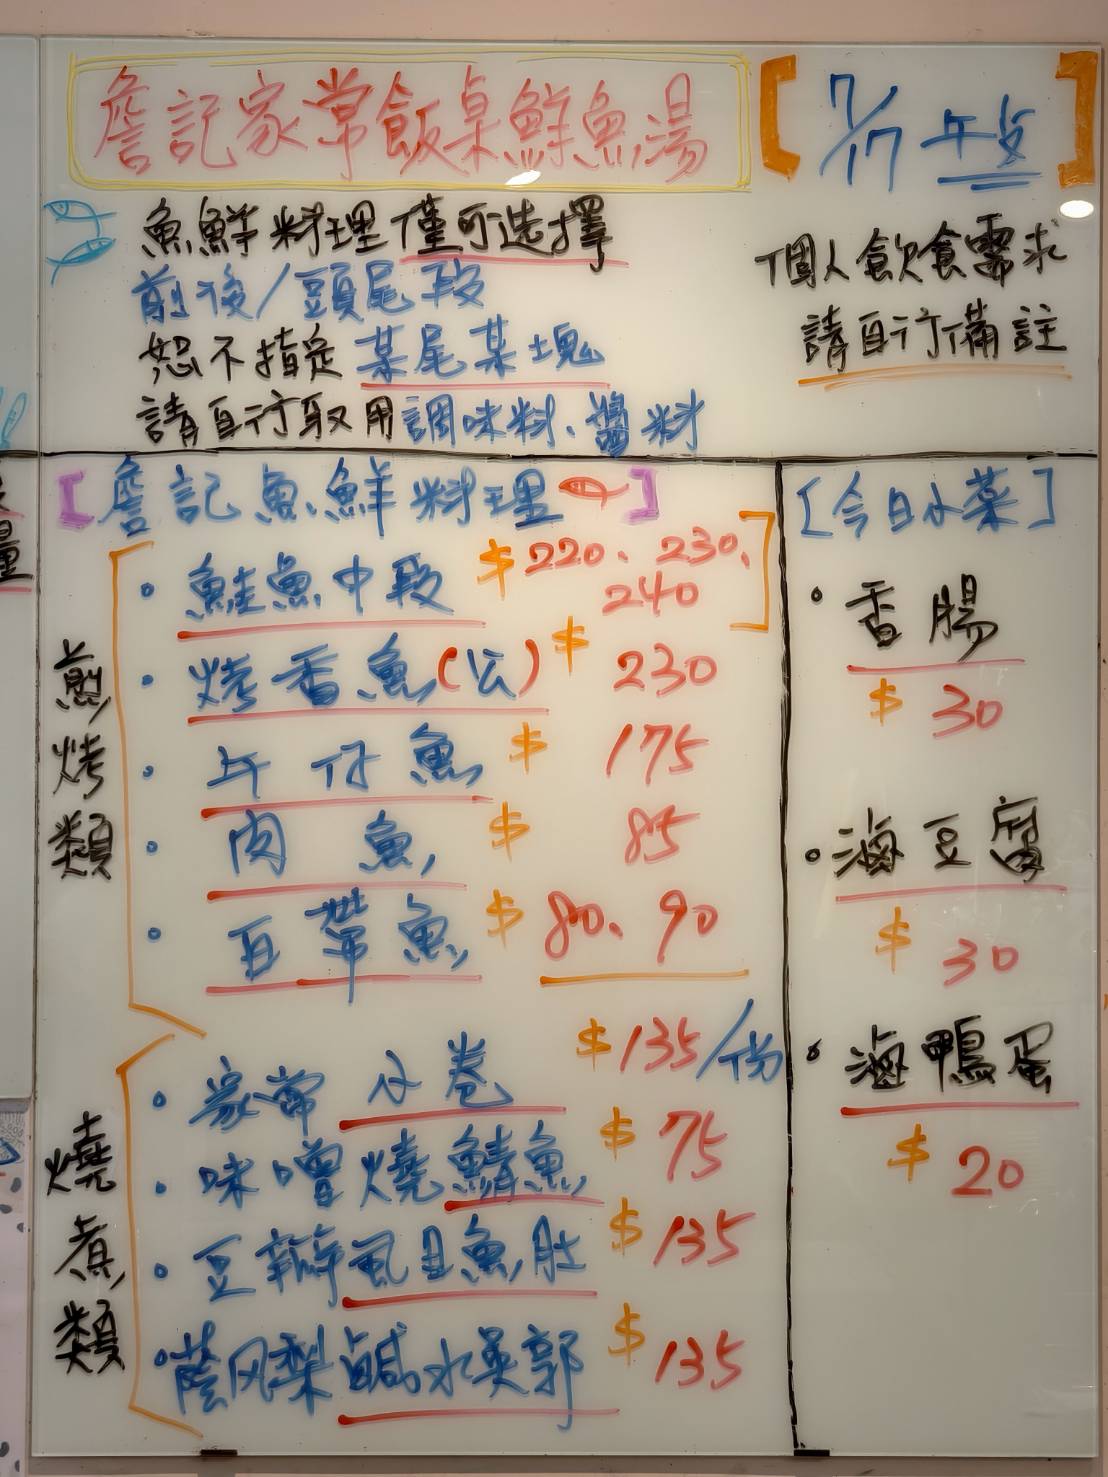 詹記家常飯桌鮮魚湯
[7/17 午安]
魚鮮料理僅可選擇
前後/頭尾段
恕不指定某尾某塊
請自行取用調味料、醬料
個人飲食需求
請自行備註
[詹記魚鮮料理]
煎烤類
・鮭魚中段 $220、230、
240
・烤香魚(公) $230
・午仔魚 $175
・肉魚 $85
・白帶魚 $80、90
燒煮類
・家常小卷 $135/份
・味噌燒鯖魚 $75
・豆瓣虱目魚肚 $135
・蔭凤梨鹹水吳郭 $135
[今日小菜]
・香腸
$30
・滷豆腐
$30
・滷鴨蛋
$20
量